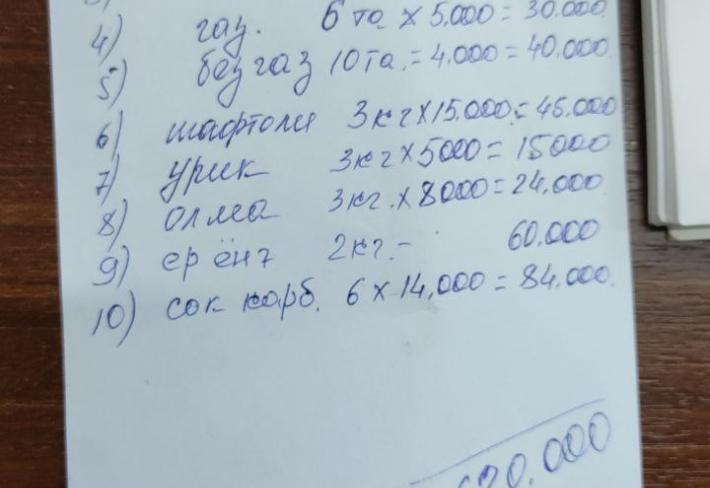 4) газ. 6 та × 5.000 = 30.000
5) без газ 10 та. = 4.000 = 40.000
6) шафтоли 3 кг × 15.000 = 45.000
7) урик 3 кг × 5000 = 15000
8) олма 3 кг. × 8000 = 24.000
9) ер ёнғ 2 кг. - 60.000
10) сок карб. 6 × 14,000 = 84.000.
20.000